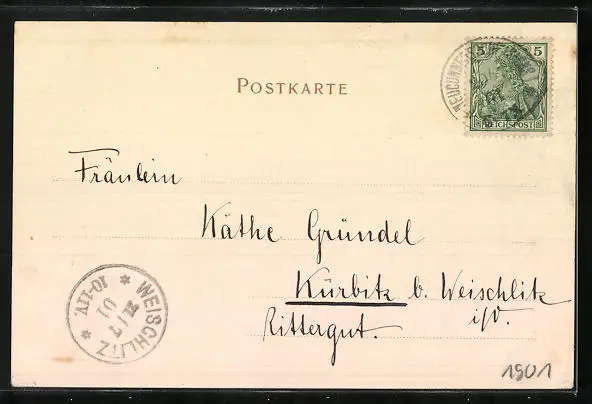 POSTKARTE
5 5
REICHSPOST
Fräulein
Käthe Gründel
Kürbitz b. Weischlitz
Rittergut. i/V.
* WEISCHLITZ *
01
10-11V.
1901